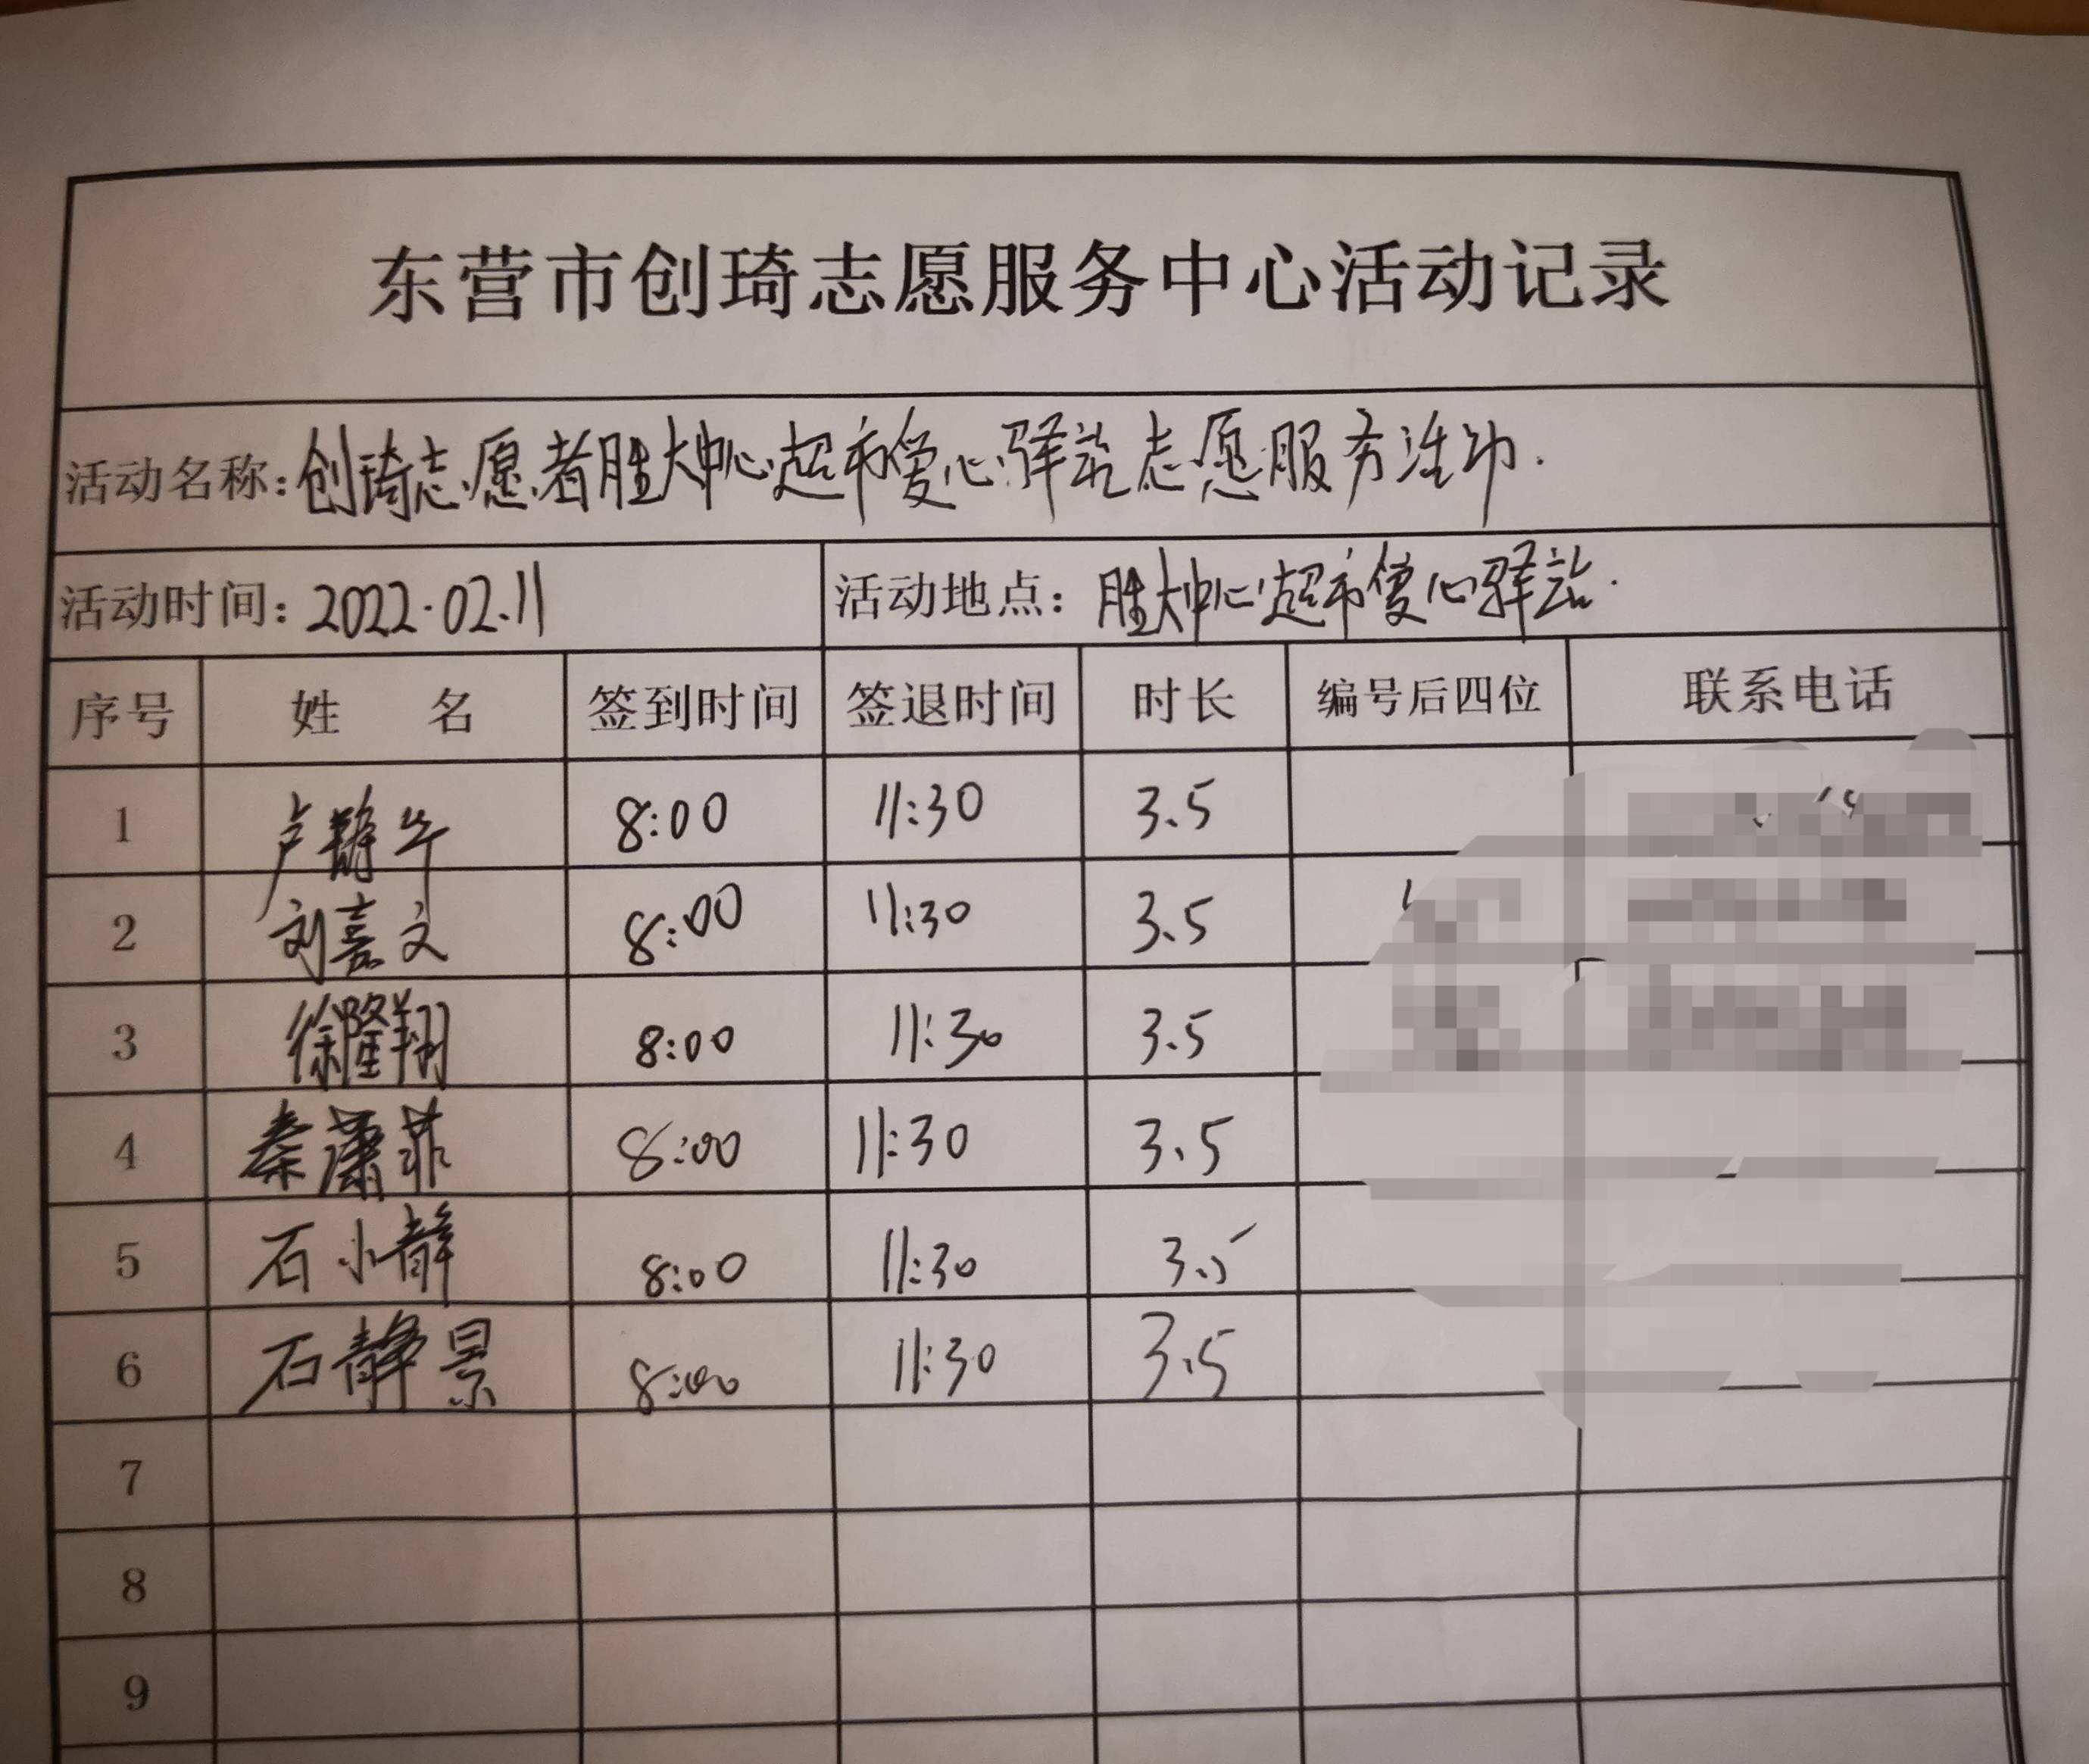 东营市创琦志愿服务中心活动记录
活动名称：创琦志愿者胜大中心超市爱心驿站志愿服务活动.
活动时间：2022.02.11 活动地点：胜大中心超市爱心驿站.
序号 姓 名 签到时间 签退时间 时长 编号后四位 联系电话
1 卢静华 8:00 11:30 3.5
2 刘嘉文 8:00 11:30 3.5
3 徐隆翔 8:00 11:30 3.5
4 秦潇菲 8:00 11:30 3.5
5 石小静 8:00 11:30 3.5
6 石静景 8:00 11:30 3.5
7
8
9